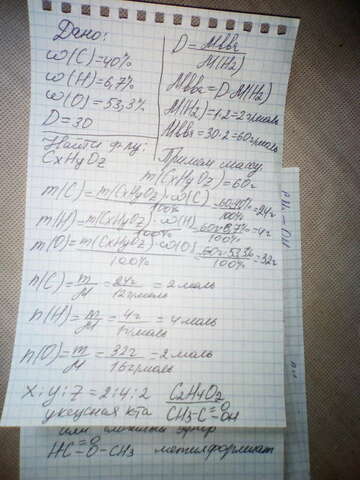 Дано:
ω(C)=40%
ω(H)=6,7%
ω(O)=53,3%
D=30
Найти ф-лу:
CxHyOz
D=Mвва/M(H2)
Mвва=D·M(H2)
M(H2)=1·2=2г/моль
Mвва=30·2=60г/моль
Примем массу
m(CxHyOz)=60г
m(C)=m(CxHyOz)·ω(C)/100%=60·40%/100%=24г
m(H)=m(CxHyOz)·ω(H)/100%=60·6,7%/100%=4г
m(O)=m(CxHyOz)·ω(O)/100%=60·53,3%/100%=32г
n(C)=m/M=24г/12г/моль=2моль
n(H)=m/M=4г/1г/моль=4моль
n(O)=m/M=32г/16г/моль=2моль
x:y:z=2:4:2 C2H4O2
уксусная к-та CH3-C=O-OH
или сложный эфир
HC=O-O-CH3 метилформиат